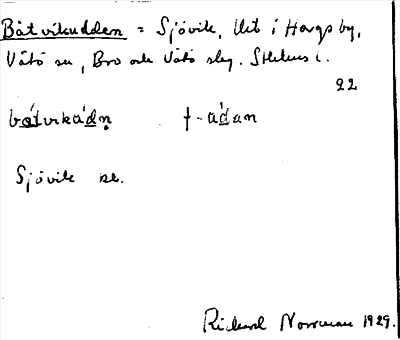 Båtvikudden = Sjövik, Utt i Harg, by,
Vätö sn, Bro och Vätö slg. Sthlms l.
22
båtvikádn f -ádan
Sjövik se.
Rickard Norrman 1929.